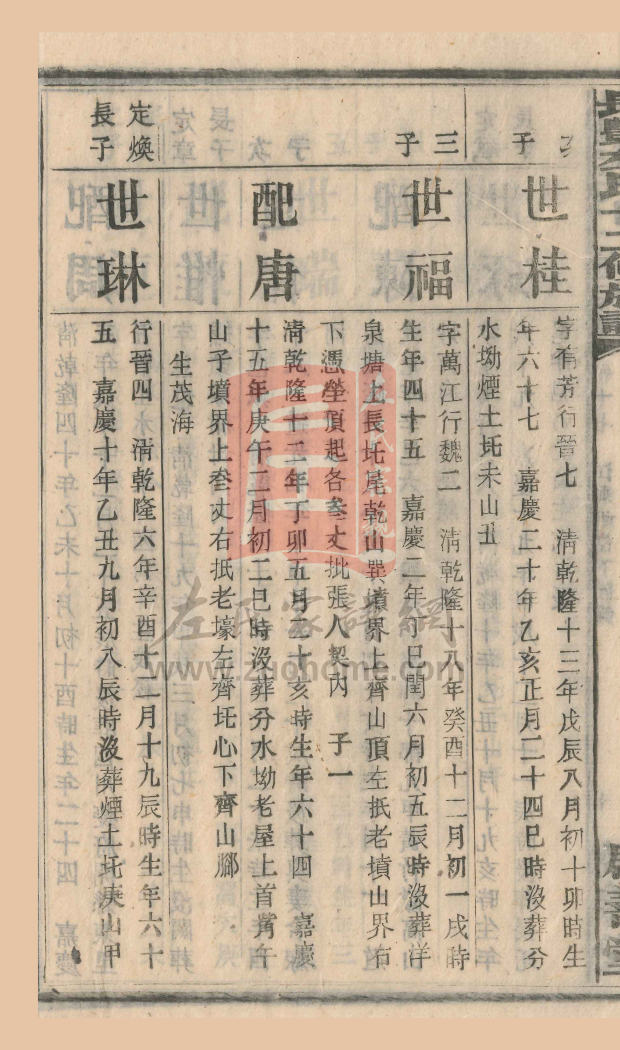 次子
世桂
字有芳行晉七 清乾隆十三年戊辰八月初十卯時生
年六十七 嘉慶二十年乙亥正月二十四巳時沒葬分
水坳煙土圫未山丑
三子
世福
字萬江行魏二 清乾隆十八年癸酉十二月初一戌時
生年四十五 嘉慶二年丁巳閏六月初五辰時沒葬洋
泉塘上長圫尾乾山巽墳界上齊山頂左抵老墳山界右
下憑塋頂起各叁丈批張人契內 子一
配唐
清乾隆十二年丁卯五月二十亥時生年六十四 嘉慶
十五年庚午三月初二巳時沒葬分水坳老屋上首
山子墳界上叁丈右抵老壕左齊圫心下齊山腳
生茂海
定煥長子
世琳
行晉四 清乾隆六年辛酉十二月十九辰時生年六十
五 嘉慶十年乙丑九月初八辰時沒葬煙土圫庚山甲
左氏家譜網
www.zuohome.com